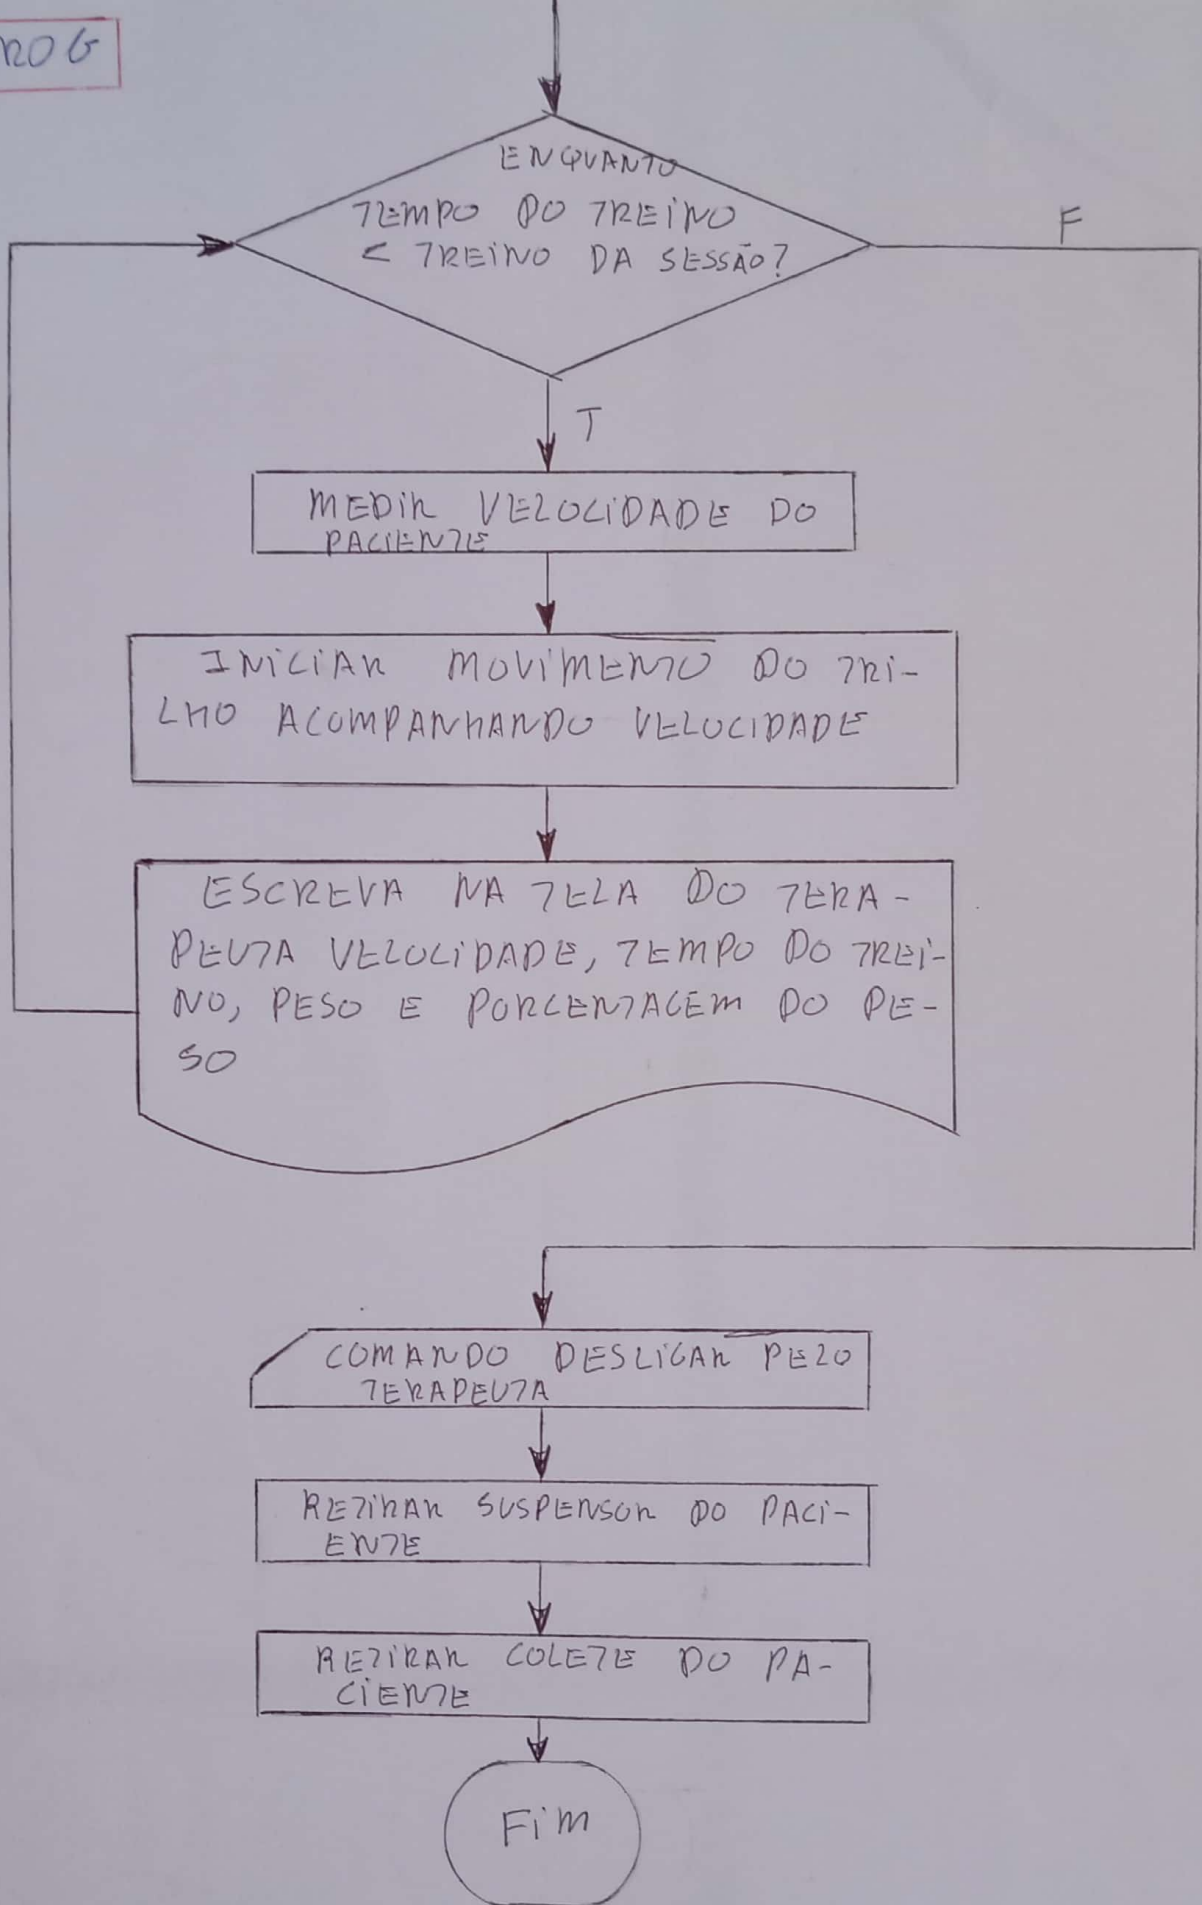 ROG
ENQUANTO
TEMPO DO TREINO
< TREINO DA SESSÃO?
F
T
MEDIR VELOCIDADE DO
PACIENTE
INICIAR MOVIMENTO DO TRI-
LHO ACOMPANHANDO VELOCIDADE
ESCREVA NA TELA DO TERA-
PEUTA VELOCIDADE, TEMPO DO TREI-
NO, PESO E PORCENTAGEM DO PE-
SO
COMANDO DESLIGAR PELO
TERAPEUTA
RETIRAR SUSPENSOR DO PACI-
ENTE
RETIRAR COLETE DO PA-
CIENTE
Fim